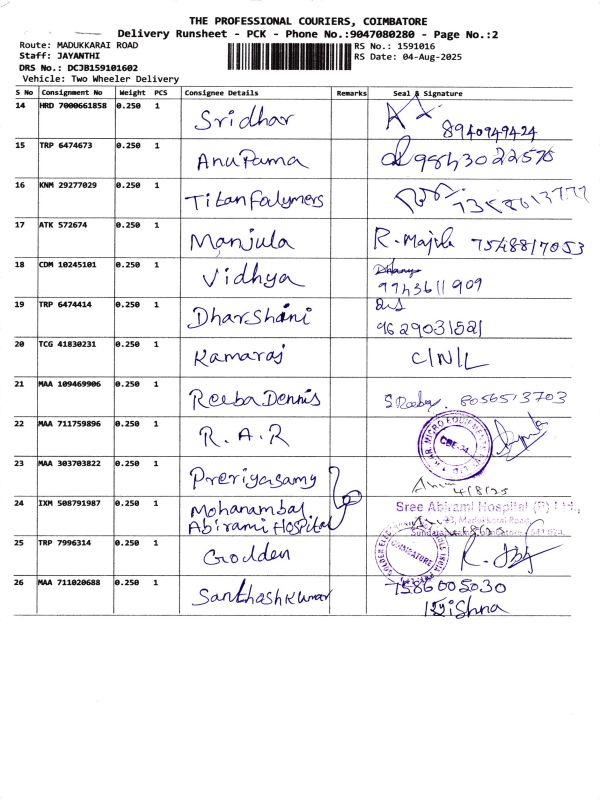 THE PROFESSIONAL COURIERS, COIMBATORE
Delivery Runsheet - PCK - Phone No.:9047080280 - Page No.:2
Route: MADUKKARAI ROAD
RS No.: 1591016
Staff: JAYANTHI
RS Date: 04-Aug-2025
DRS No.: DCJB159101602
Vehicle: Two Wheeler Delivery
S No Consignment No Weight PCS Consignee Details Remarks Seal & Signature
14 HRD 7000661858 0.250 1 Sridhar
8940949424
15 TRP 6474673 0.250 1 AnuPama 9843022576
16 KNM 29277029 0.250 1 Titan Falymers
17 ATK 572674 0.250 1 Manjula R. Majula 7548817053
18 CDM 10245101 0.250 1 Vidhya Dhanya
9943611909
19 TRP 6474414 0.250 1 Dharshini
9629031521
20 TCG 41830231 0.250 1 Kamaraj C/N/L
21 MAA 109469906 0.250 1 Reeba Dennis S Reeba. 8056513703
22 MAA 711759896 0.250 1 R.A.R
MICRO EQUIPMENT
CBE-24
23 MAA 303703822 0.250 1 Preriyasamy
4/8/25
24 IXM 508791987 0.250 1 Mohanambal
Abirami Hospital
Sree Abirami Hospital (P) Ltd.,
Madukkarai Road,
25 TRP 7996314 0.250 1 Godden
COIMBATORE
26 MAA 711020688 0.250 1 Santhash kumar 7586005030
Krishna